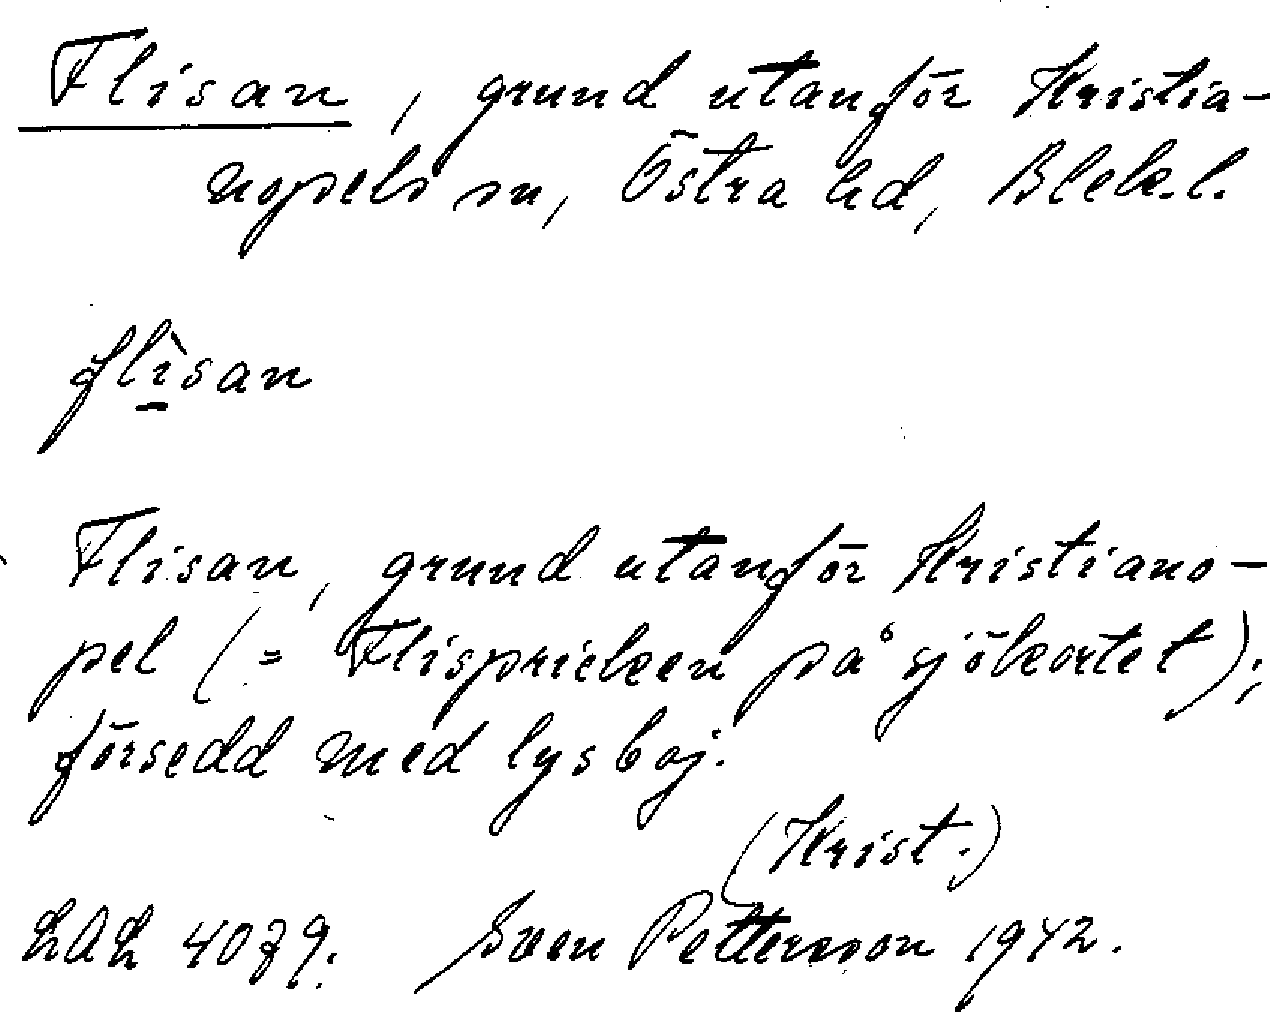 Flisan, grund utanför Kristia-
nopels sn, Östra hd, Blek.l.
flìsan
Flisan, grund utanför Kristiano-
pel (= Flispricken på sjökortet);
försedd med lysboj.
(Krist.)
LAL 4079. Sven Pettersson 1942.